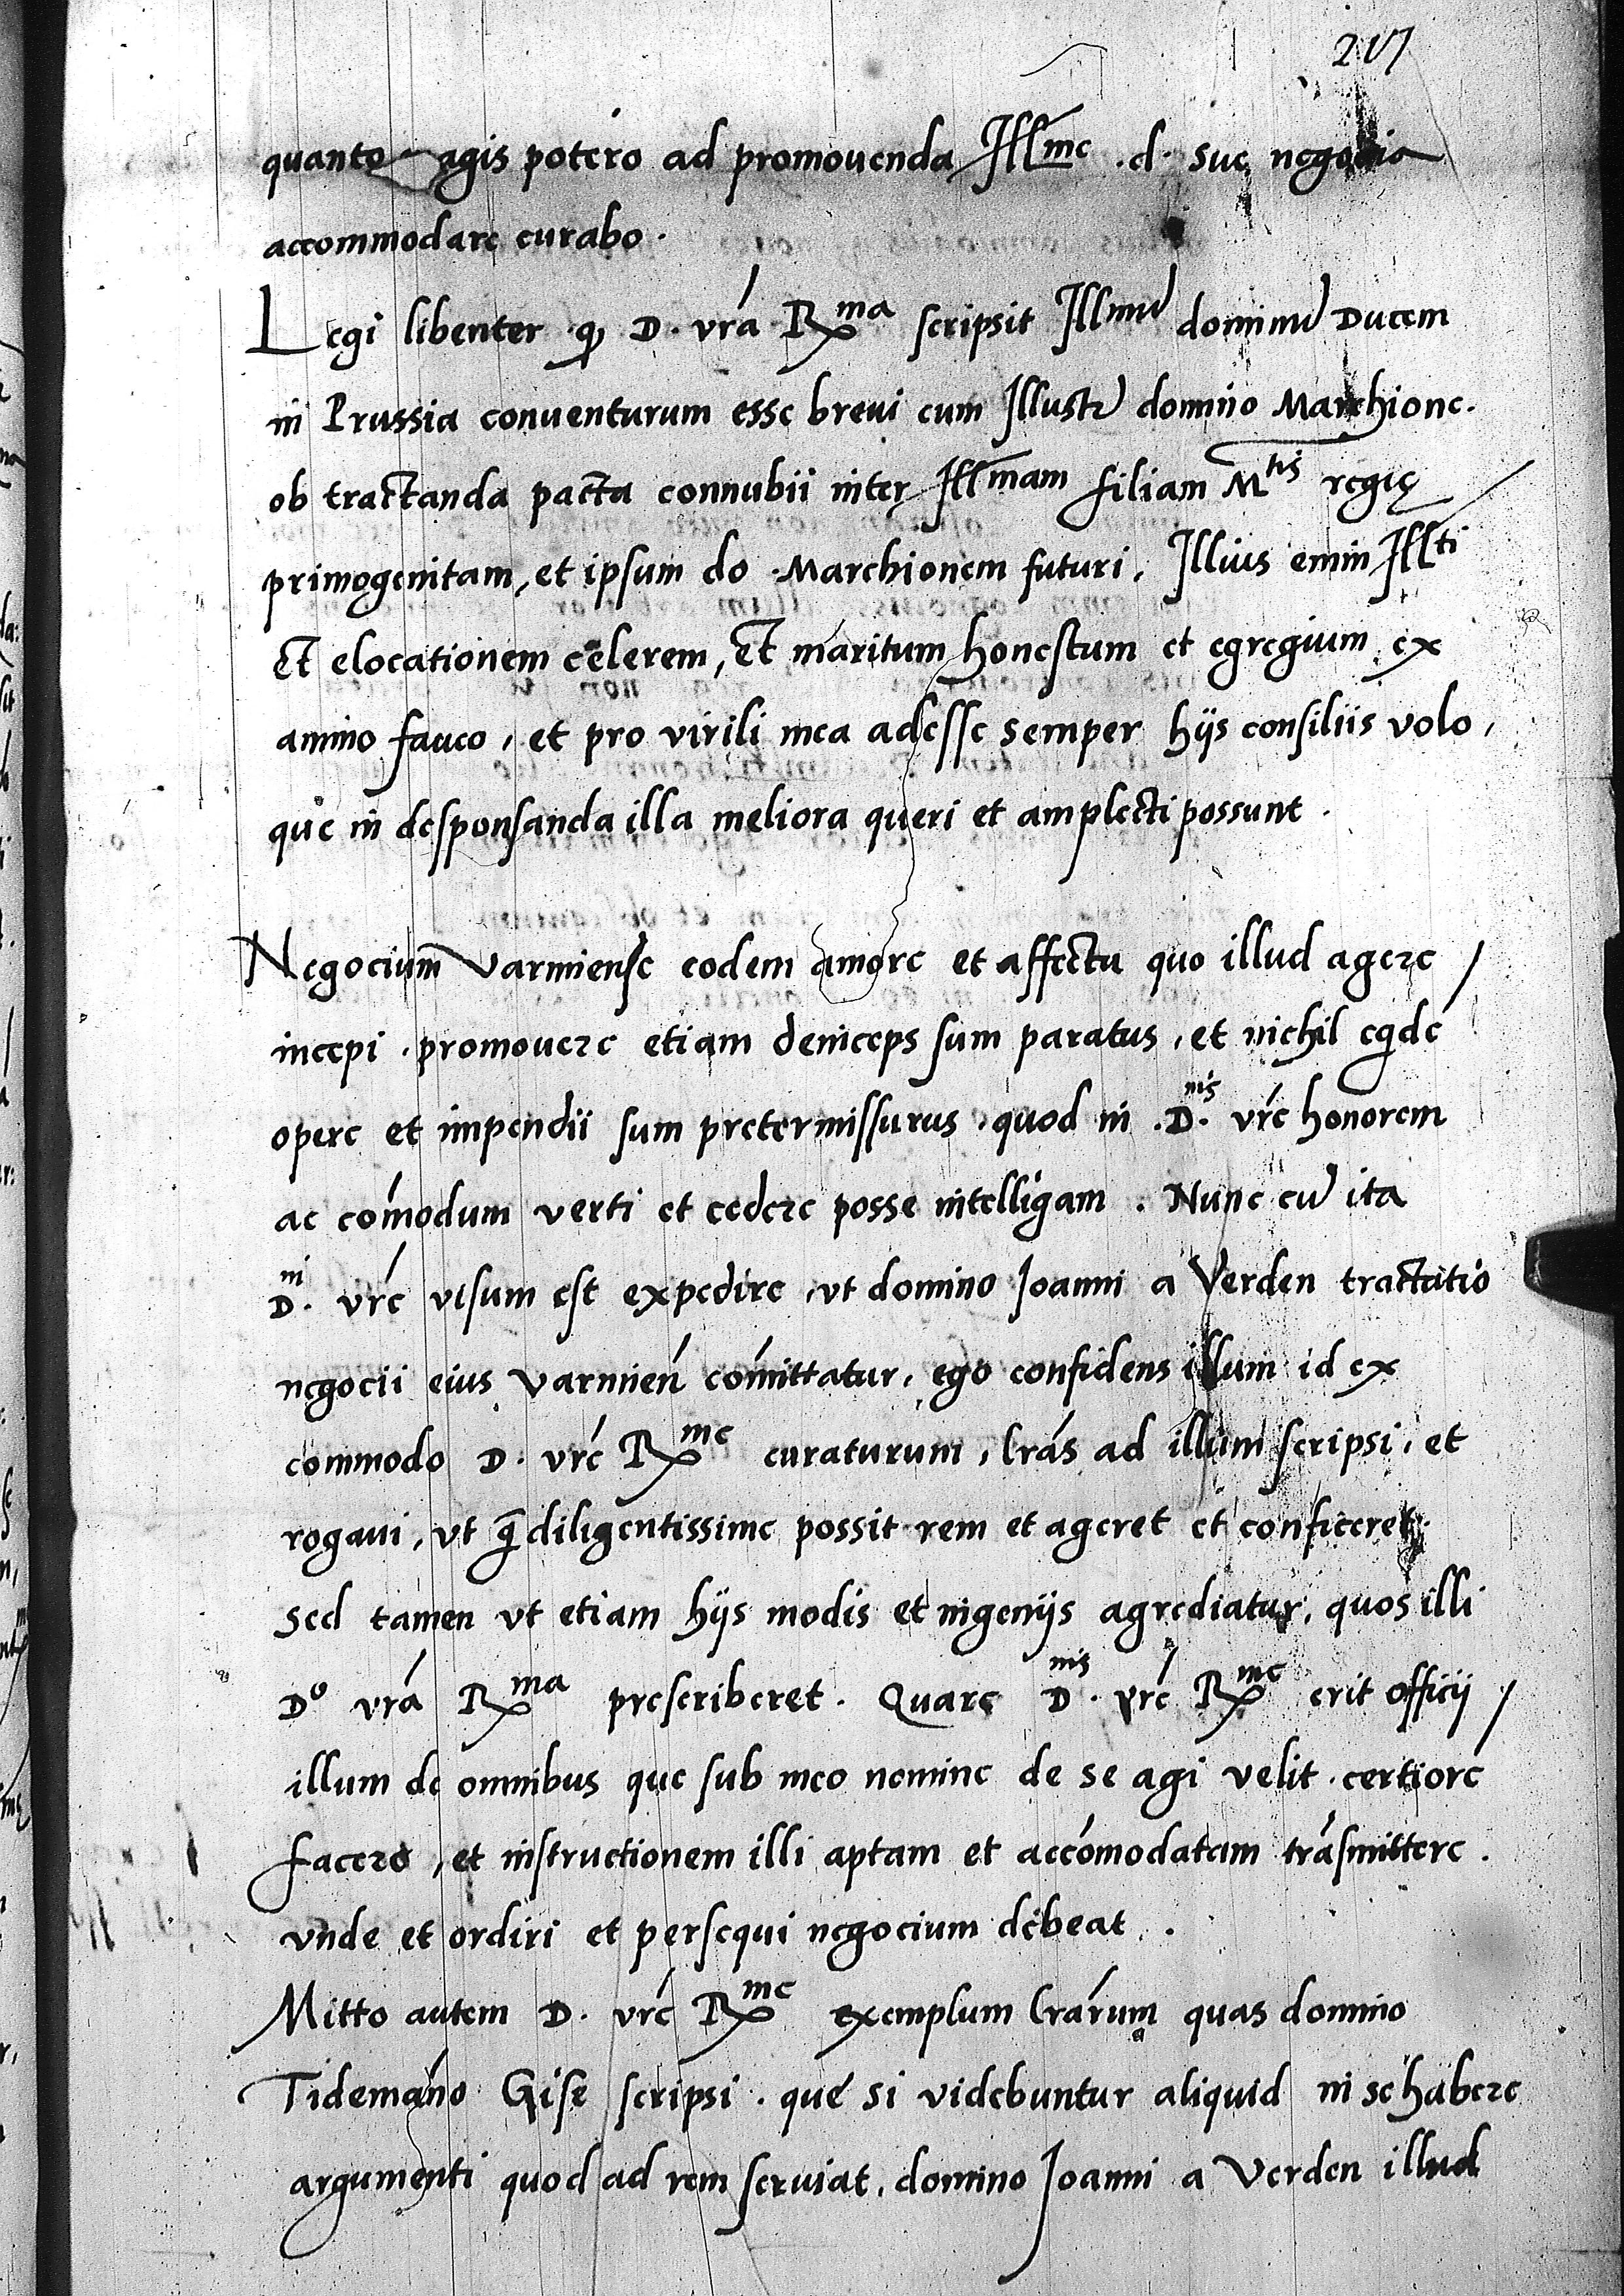 217
quanto magis potero ad promouenda Illme .d. sue negocia
accommodare curabo.
Legi libenter q̨ D. vrá Rma scripsit Illmū dominū Ducem
in Prussia conuenturum esse breui cum Illustr domino Marchione.
ob tractanda pacta connubii inter Illmam filiam Mtis regię
primogenitam, et ipsum do. Marchionem futuri, Illius enim Illti
Et elocationem celerem, Et maritum honestum et egregium ex
animo faueo, et pro virili mea adesse semper hijs consiliis volo,
que in desponsanda illa meliora queri et amplecti possunt.
Negocium Varmiense eodem amore et affectu quo illud agere
incepi. promouere etiam deinceps sum paratus, et nichil eqde
opere et impendii sum pretermissurus. quod in .D.nis vré honorem
ac cómodum verti et cedere posse intelligam. Nunc cū ita
D.ni vré visum est expedire, vt domino Joanni a Verden tractatio
negocii eius Varmień cómittatur, ego confidens illum id ex
commodo D. vré Rme curaturum, lrás ad illum scripsi, et
rogaui, vt q̄ diligentissime possit rem et ageret et conficeret.
Sed tamen vt etiam hijs modis et ingenijs agrediatur, quos illi
Do vrá Rma prescriberet. Quare D.nis vré Rme erit officij
illum de omnibus que sub meo nomine de se agi velit. certioré
facere, et instructionem illi aptam et accómodatam trásmittere.
vnde et ordiri et persequi negocium debeat.
Mitto autem D. vré Rme exemplum lrárum quas domino
Tidemáno Gise scripsi. que si videbuntur aliquid in se habere
argumenti quod ad rem seruiat, domino Joanni a Verden illud